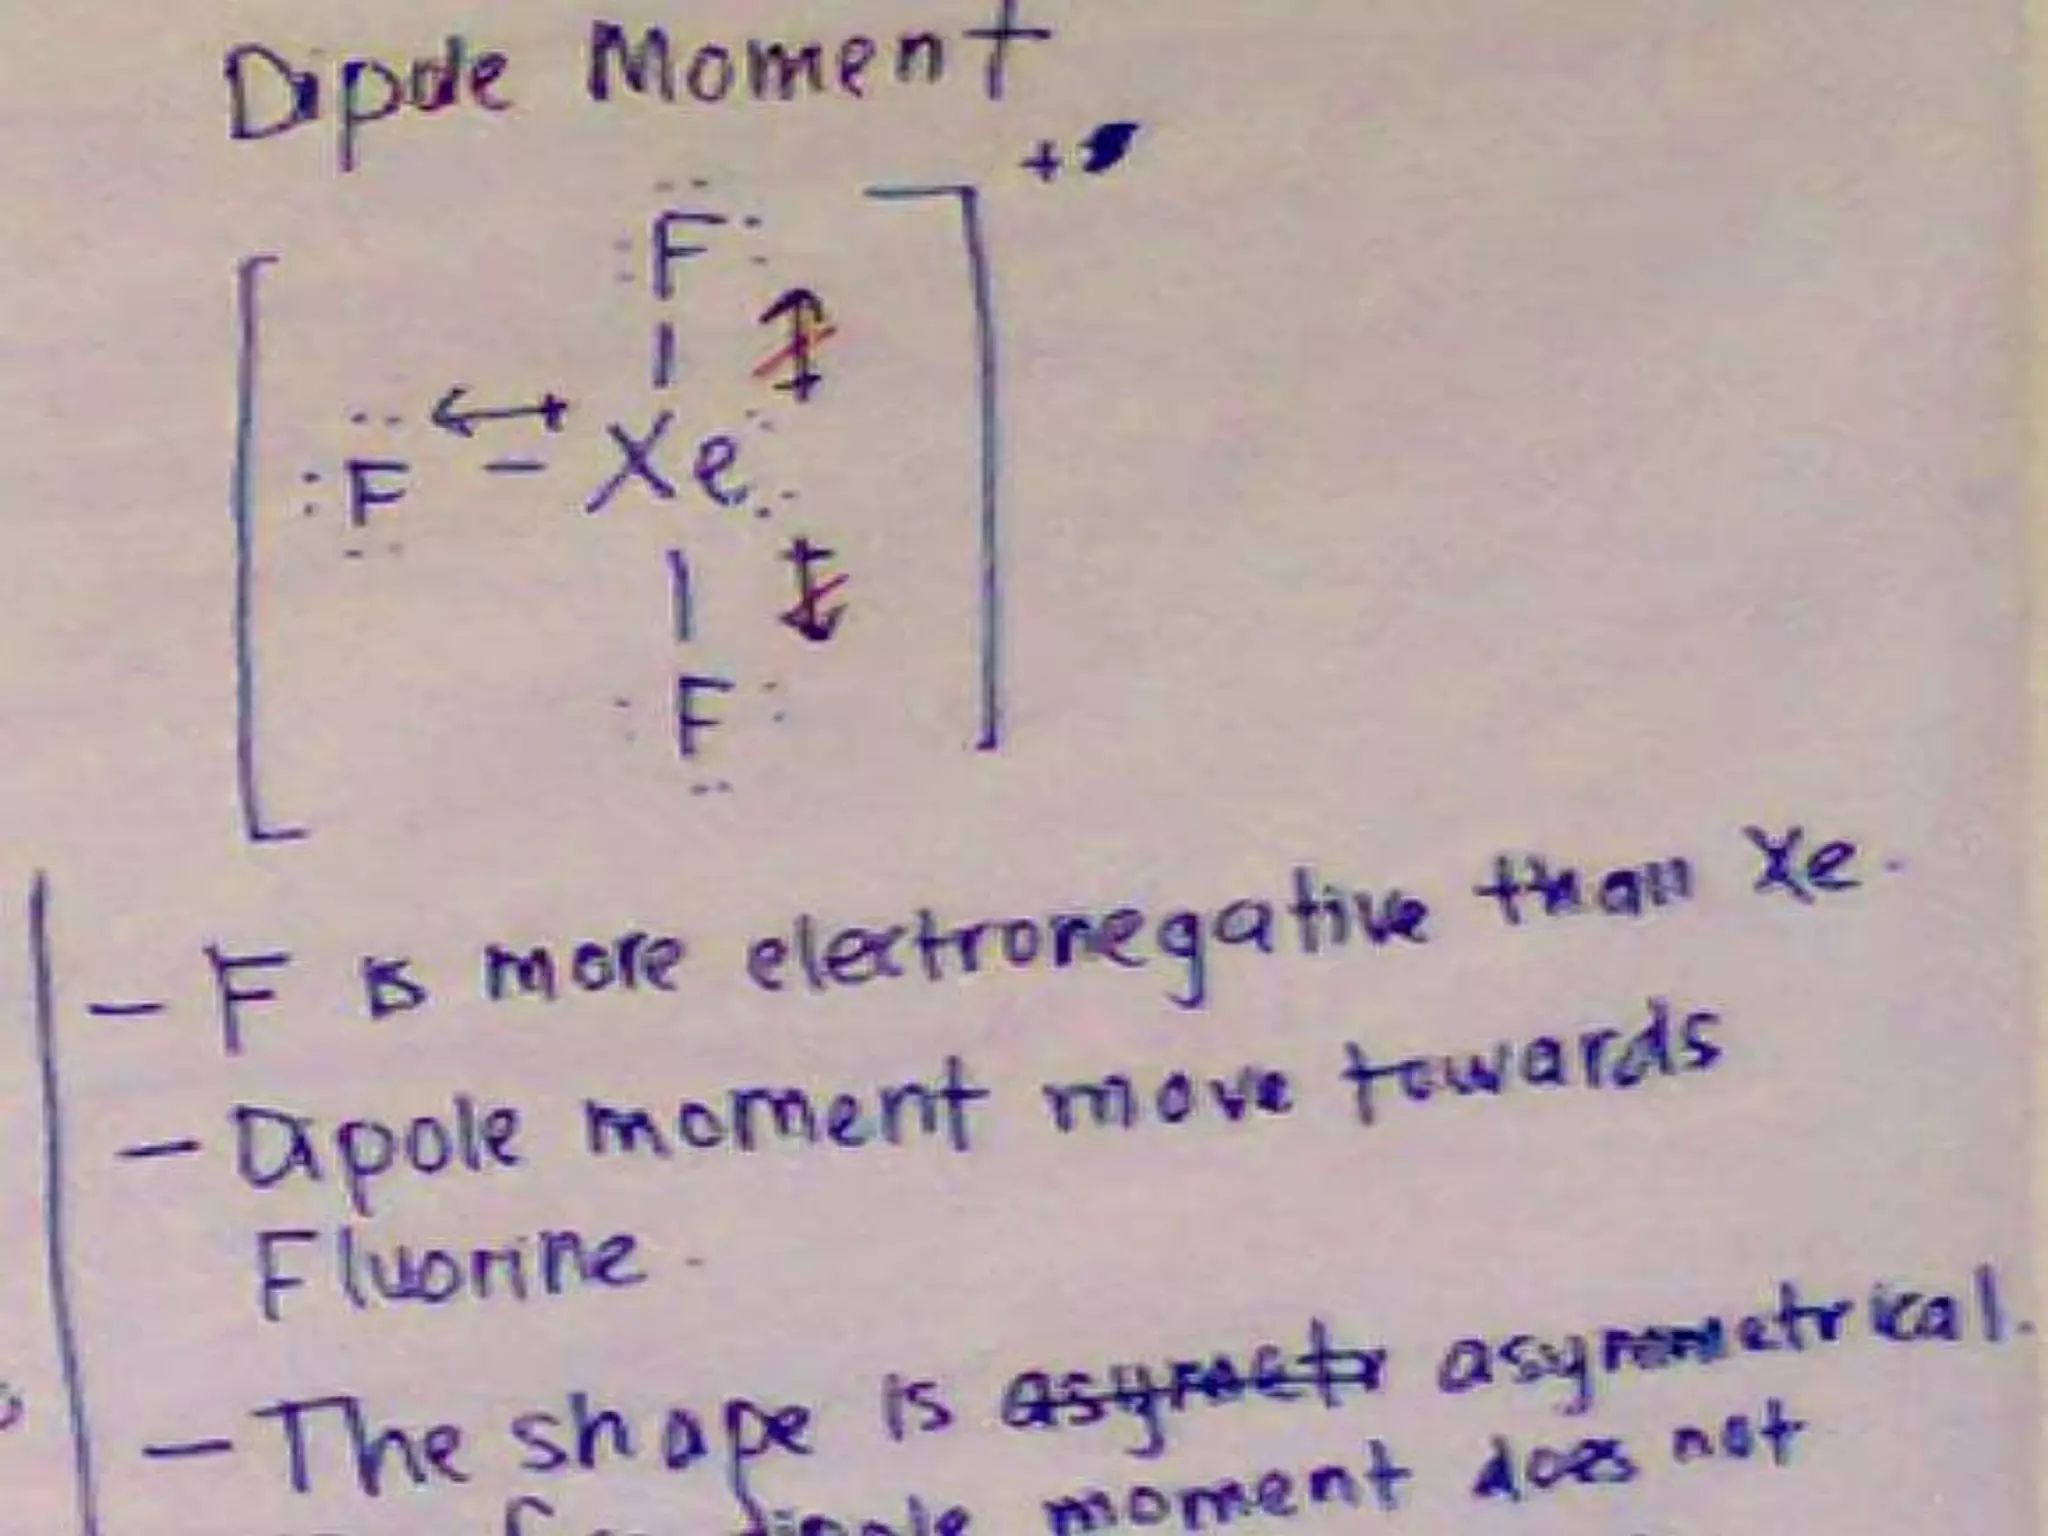 Dipole Moment
+
F
F - Xe
F
- F is more electronegative than Xe.
- Dipole moment move towards
Fluorine.
- The shape is asymetr asymmetrical.
moment does not